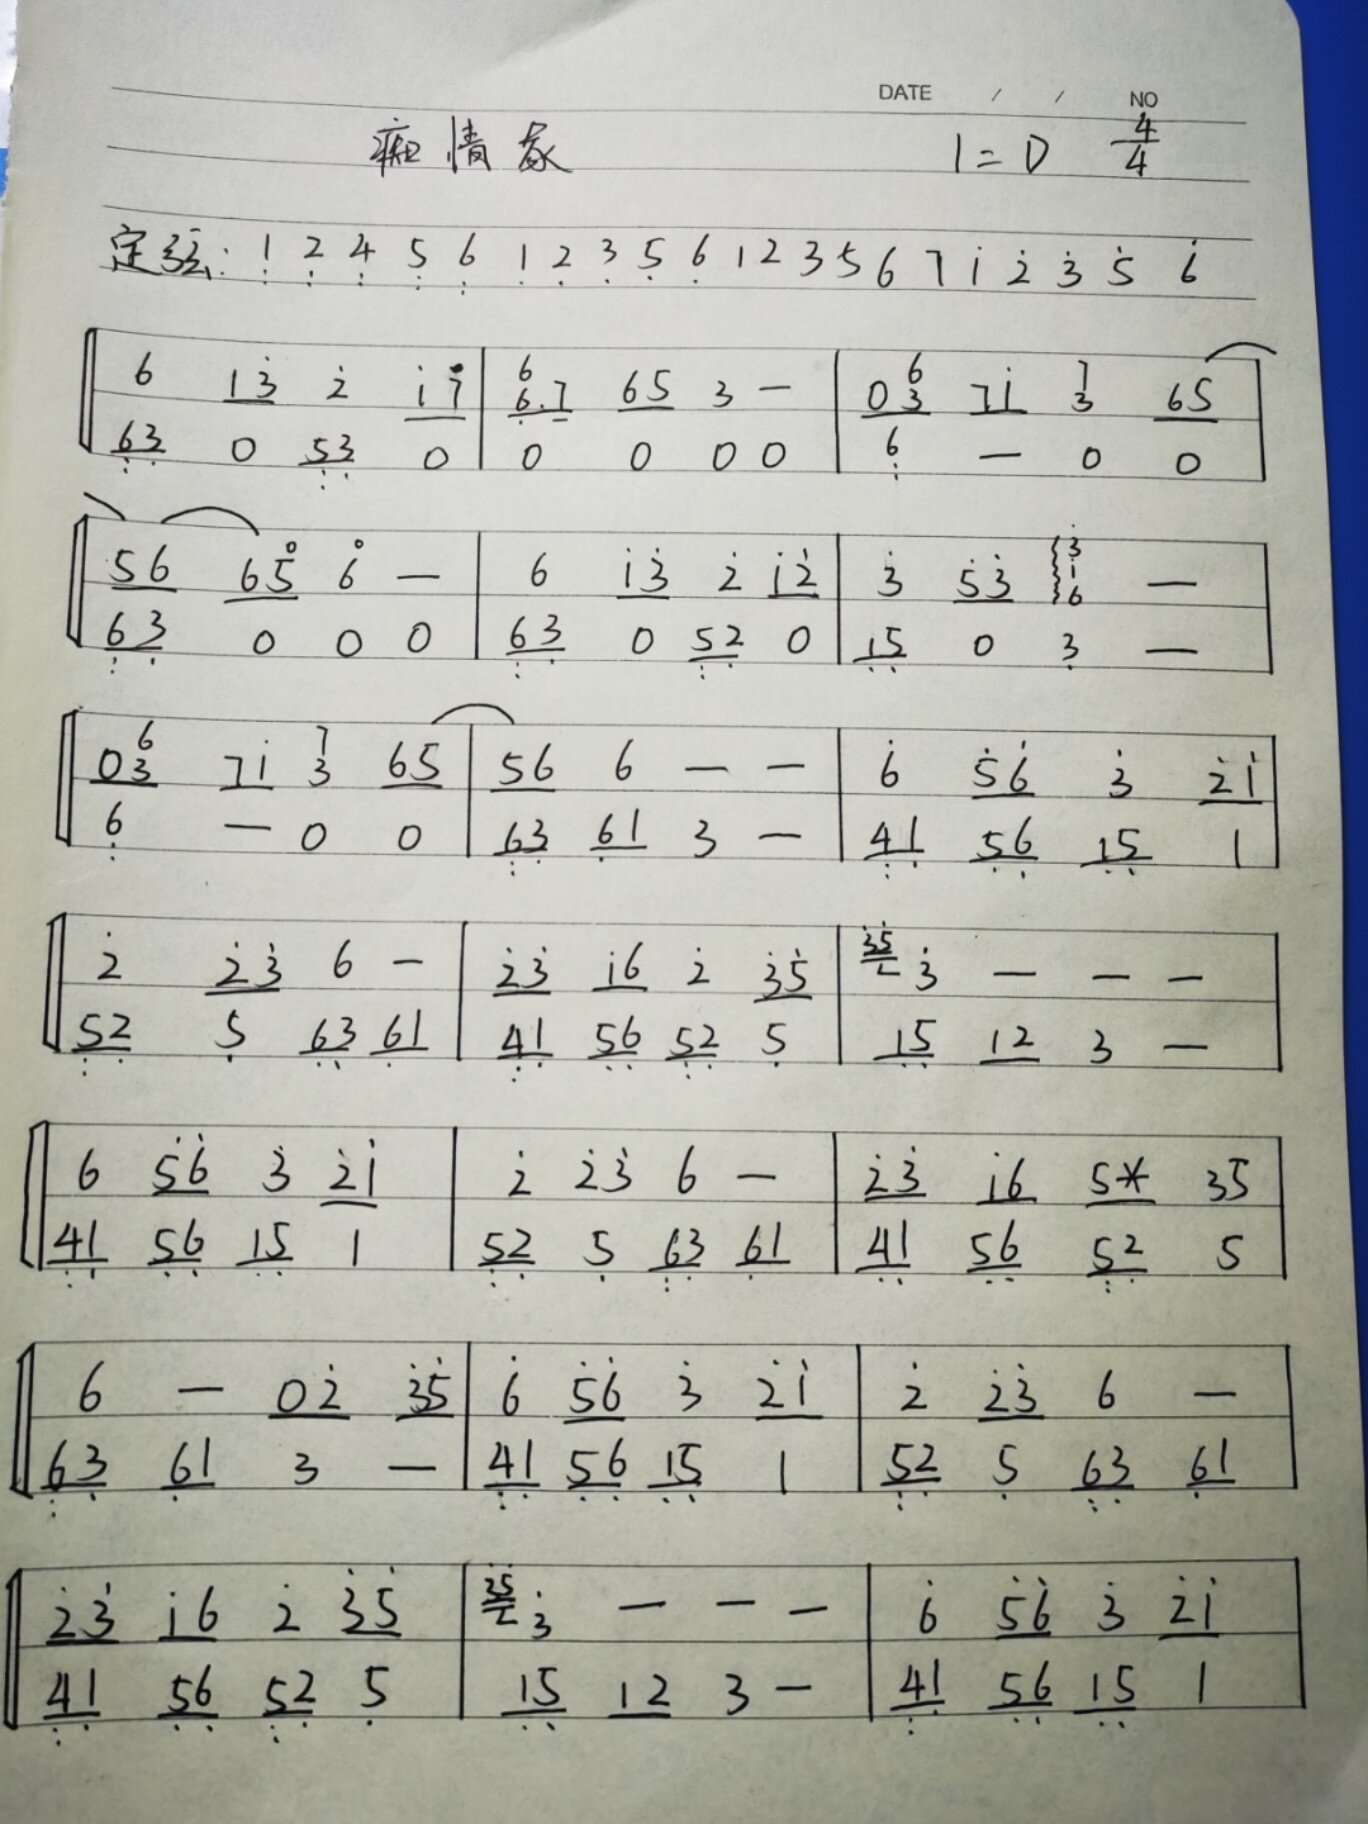 DATE / / NO
痴情冢 1=D 4/4
定弦: 1 2 4 5 6 1 2 3 5 6 1 2 3 5 6 7 i 2̇ 3̇ 5̇ 6̇
6 13̇ 2̇ i7̇ | 6 6.7 65 3 — | 0 6 3 7i 7 3 65
63 0 53 0 | 0 0 0 0 | 6 — 0 0
56 65̇ 6̇ — | 6 i3̇ 2̇ i2̇ | 3̇ 5̇3̇ 3̇ i 6 —
63 0 0 0 | 63 0 52 0 | 15 0 3 —
0 6 3 7i 7 3 65 | 56 6 — — | 6̇ 5̇6̇ 3̇ 2̇i
6 — 0 0 | 63 61 3 — | 41 56 15 1
2̇ 2̇3̇ 6 — | 2̇3̇ i6 2̇ 3̇5̇ | 3̇5̇ 3̇ — — —
52 5 63 61 | 41 56 52 5 | 15 12 3 —
6 5̇6̇ 3̇ 2̇i | 2̇ 2̇3̇ 6 — | 2̇3̇ i6 5* 35
41 56 15 1 | 52 5 63 61 | 41 56 52 5
6 — 02̇ 3̇5̇ | 6̇ 5̇6̇ 3̇ 2̇i | 2̇ 2̇3̇ 6 —
63 61 3 — | 41 56 15 1 | 52 5 63 61
2̇3̇ i6 2̇ 3̇5̇ | 3̇5̇ 3̇ — — — | 6̇ 5̇6̇ 3̇ 2̇i
41 56 52 5 | 15 12 3 — | 41 56 15 1